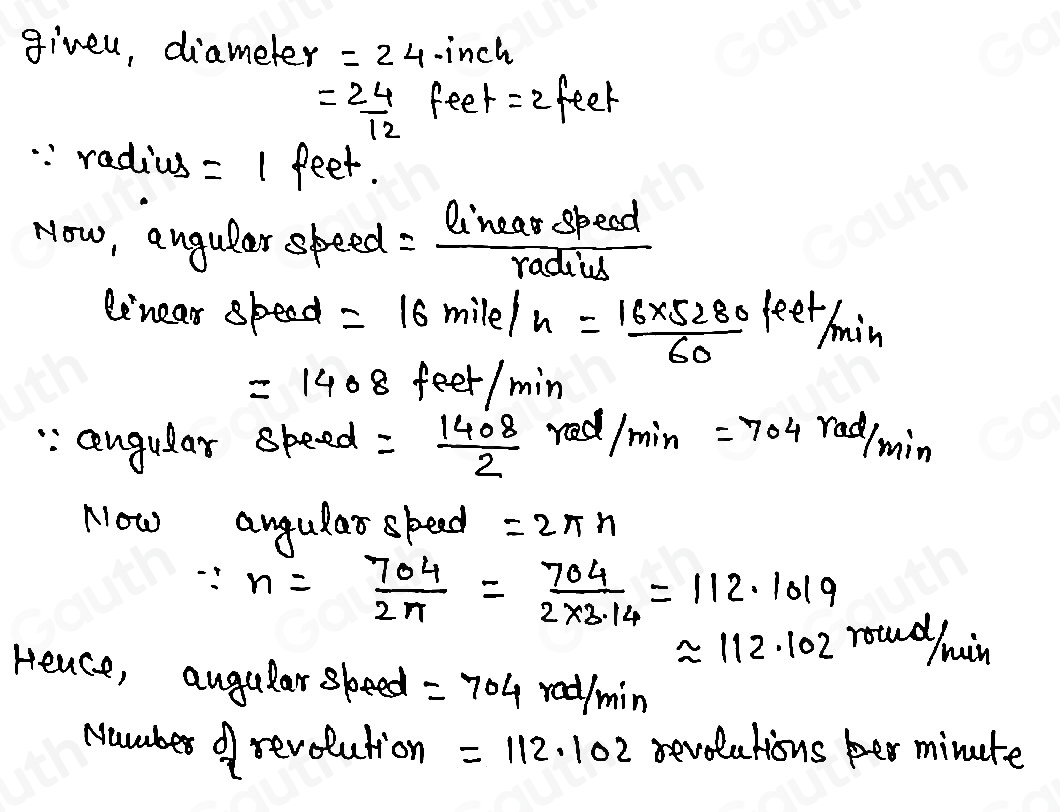 given, diameter = 24-inch
= 24/12 feet = 2 feet
∵ radius = 1 feet.
Now, angular speed = linear speed/radius
linear speed = 16 mile/h = 16×5280/60 feet/min
= 1408 feet/min
∵ angular speed = 1408/2 rad/min = 704 rad/min
Now angular speed = 2πn
∵ n = 704/2π = 704/2×3.14 = 112.1019
≈ 112.102 round/min
Hence, angular speed = 704 rad/min
Number of revolution = 112.102 revolutions per minute
Gauth